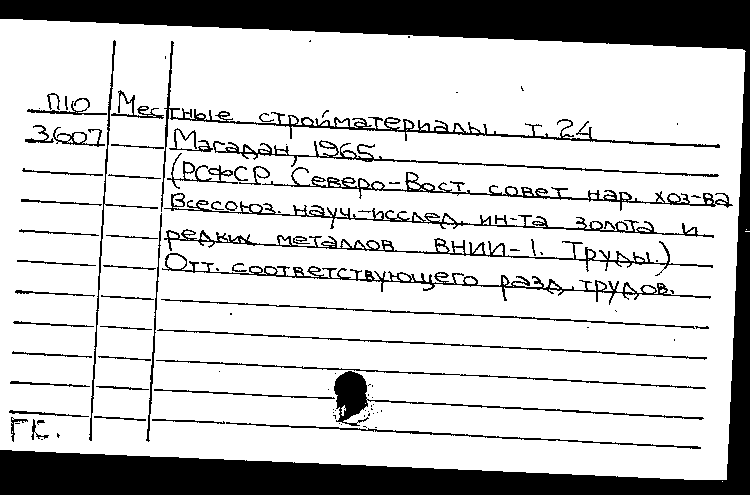 П10 Местные стройматериалы. т. 24
3607 Магадан, 1965.
(РСФСР. Северо-Вост. совет нар. хоз-ва
Всесоюз. науч.-исслед. ин-та золота и
редких металлов ВНИИ-1. Труды.)
Отт. соответствующего разд. трудов.
ГК.